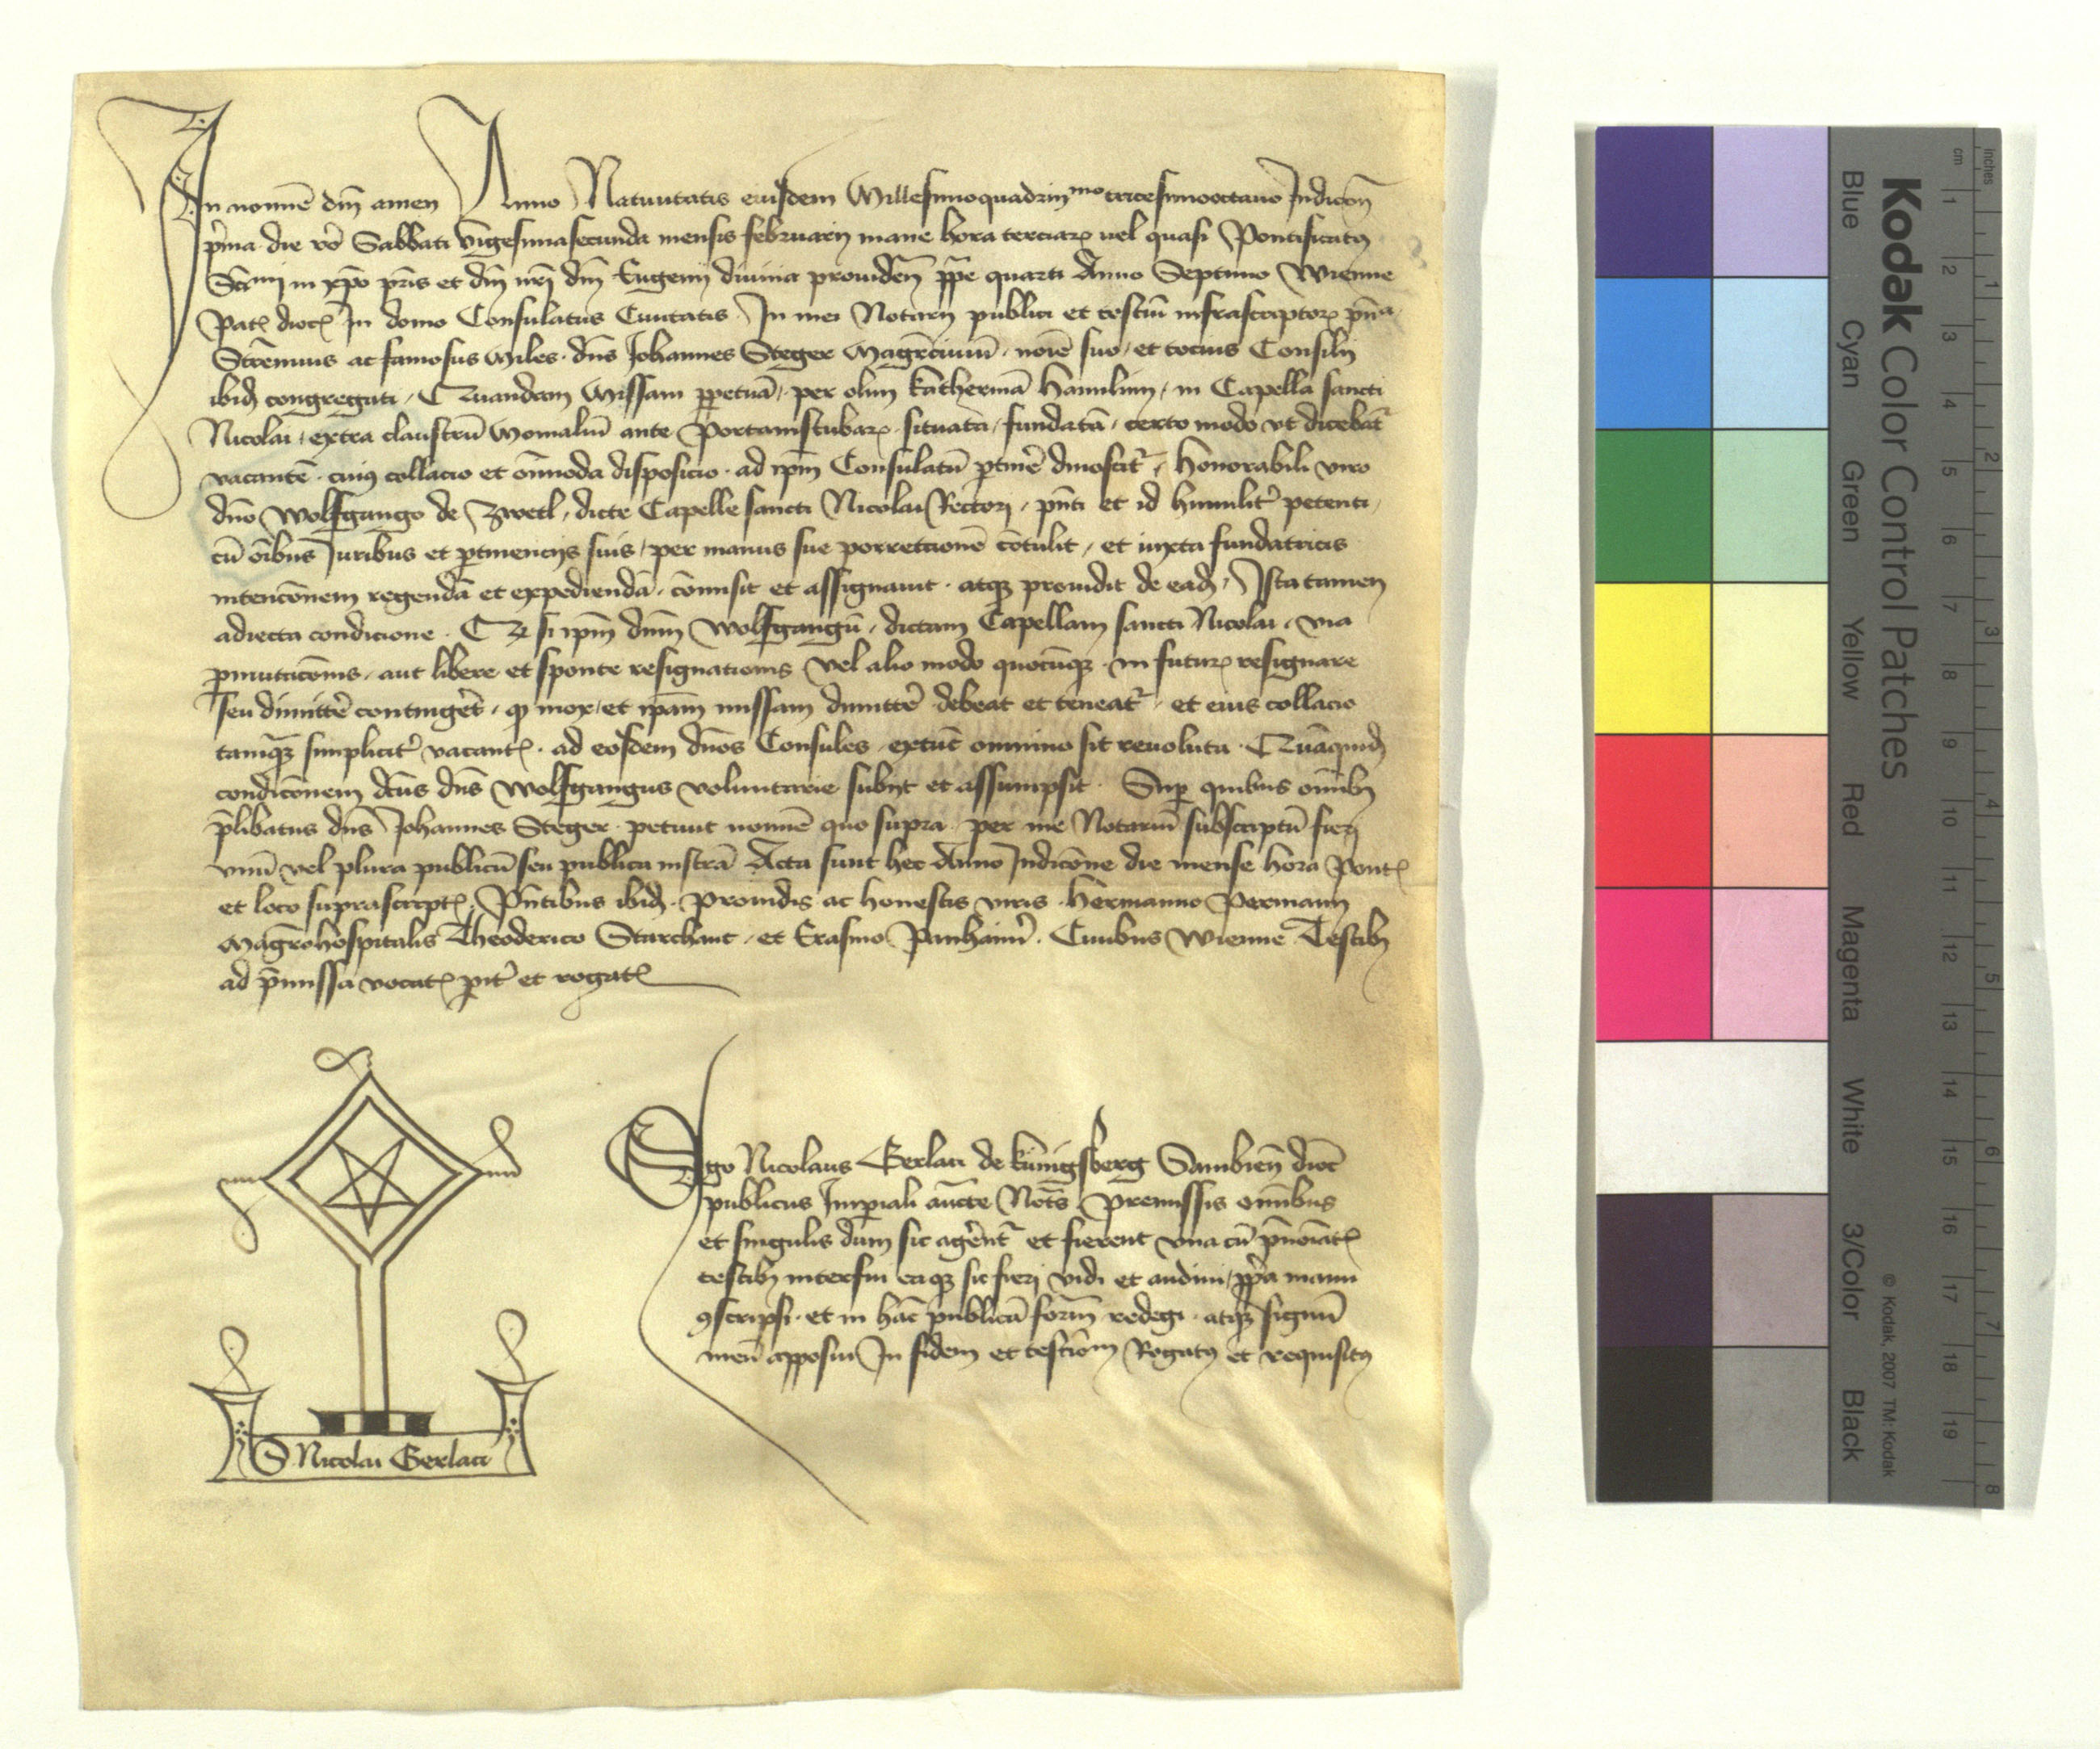 In nomine dm̄ amen Anno Natiuitatis eiusdem Millesimoquadrinᵐᵒ tricesimooctauo Indicōn
p̄ma die v̄o Sabbati vigesimasecunda mensis februarij mane hora terciaꝝ uel quasi Pontificatꝰ
Sc̄mi in xp̄o pr̄is et dn̄j nr̄j dn̄j Eugenij diuina prouidēn pp̄e quarti Anno Septimo Wienne
Patꝭ diocꝭ In domo Consulatus Ciuitatis In mei Notarij publici et testiū infrascriptoꝝ pn̄ᵃ
Strēnuus ac famosus Miles dn̄s Johannes Steger Magr̄ciuiū noīe suo et tocius Consilij
ibid̄ congregati Quandam Missam ꝑpetuā per olim katherinā Hanilinn in Capella sancti
Nicolai extra claustrū Monialiū ante Portamstubaꝝ situatā fundatā certo modo vt dicebat᷑
vacantē cuiꝰ collacio et om̄moda disposicio ad ip̄m Consulatū ꝑtinē̄ dinoscit᷑ Honorabili viro
dn̄o Wolfgango de Zwetl dicte Capelle sancti Nicolai Rectorj pn̄ti et id humilit᷑ petenti
cū oībus Juribus et ꝑtinencijs suis per manus sue porrectionē cōtulit et iuxta fundatricis
intencōnem regendā et expediendā cōmisit et assignauit atqꝫ prouidit de ead̄ Ista tamen
adiecta condicione Qꝫ si ip̄m dn̄m Wolfgangū dictam Capellam sancti Nicolai via
ꝑmutacōnis aut libere et sponte resignationis vel alio modo quocūqꝫ in futuꝝ resignare
seu dimitt᷑e conting᷑et ꝙ mox et ip̄am missam dimitt᷑e debeat et teneat᷑ et eius collacio
tamqꝫ simplicit᷑ vacantꝭ ad eosdem dn̄os Consules extūc omnino sit reuoluta Quāquid̄
condicōnem dc̄us dn̄s Wolfgangus voluntarie subijt et assumpsit Suꝑ quibus om̄ibꝫ
p̄libatus dn̄s Johannes Steger petiuit nomine quo supra per me Notariū subscriptū fierj
vnū vel plura publicū seu publica instrā Acta sunt hec Anno Indicōne die mense hora Pontꝭ
et loco suprascriptꝭ Pn̄tibus ibid̄ Prouidis ac honestis viris Hermanno Permann
Magr̄ohospitalis Theoderico Starchant et Erasmo Panhaim᷑ Ciuibus Wienne Testibꝫ
ad p̄missa vocatꝭ ꝑit᷑ et rogatꝭ
Ego Nicolaus Gerlaci de kūnigsberg Sambien̄ dioc̄
publicus Imꝑiali auc̄te Not̄s Premissis omībus
et singulis dum sic ag᷑ent᷑ et fierent vna cū p̄noīatꝭ
testibꝫ interfui eaqꝫ sic fierj vidi et audiui pp̄a manu
ꝯscripsi et in hāc publicā formā redegi atqꝫ signū
meū apposui In fidem et testiom̄ Rogatꝰ et requisitꝰ
S Nicolai Gerlaci
Kodak Color Control Patches
Blue Cyan Green Yellow Red Magenta White 3/Color Black
© Kodak, 2007 TM: Kodak
cm 1 2 3 4 5 6 7 8 9 10 11 12 13 14 15 16 17 18 19
inches 1 2 3 4 5 6 7 8